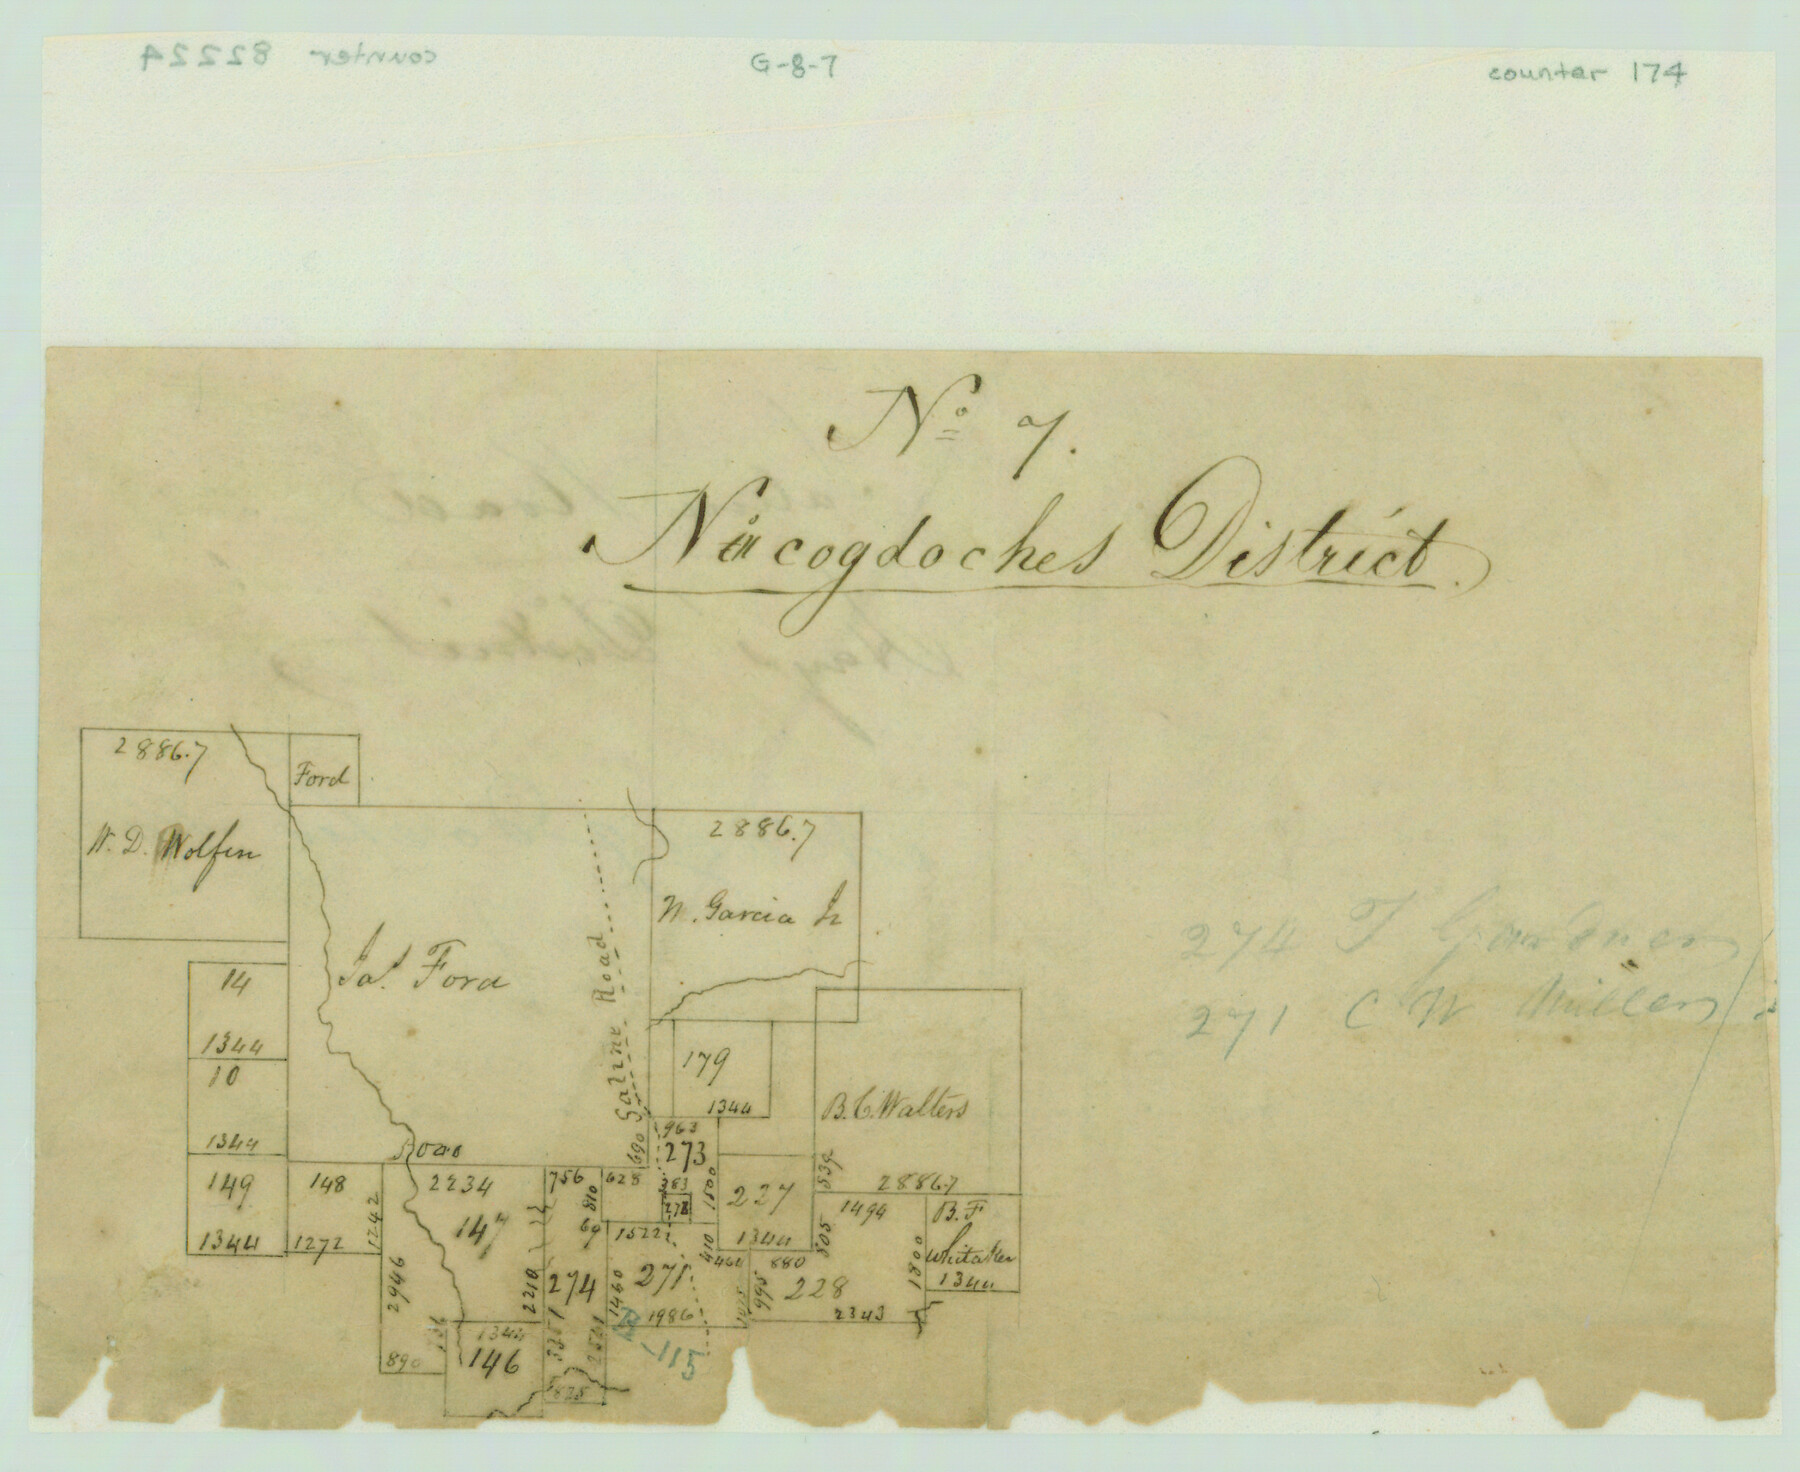 counter 82224
G-8-7
counter 174
No 7.
Nacogdoches District.
2886.7
Ford
W. D. Wolfin
2886.7
N. Garcia Jr
Jas. Ford
Saline Road
14
1344
10
1344
149
1344
148
1272
1242
Road
2234
147
2946
2210
890
1344
146
756
810
69
274
3351
2521
825
628
690
963
273
283
278
1500
1522
271
1460
1986
410
464
179
1344
227
1344
B. C. Walters
539
2886.7
805
1494
880
995
228
2343
1800
B. F
Whitaker
1344
115
274
271 C W Miller